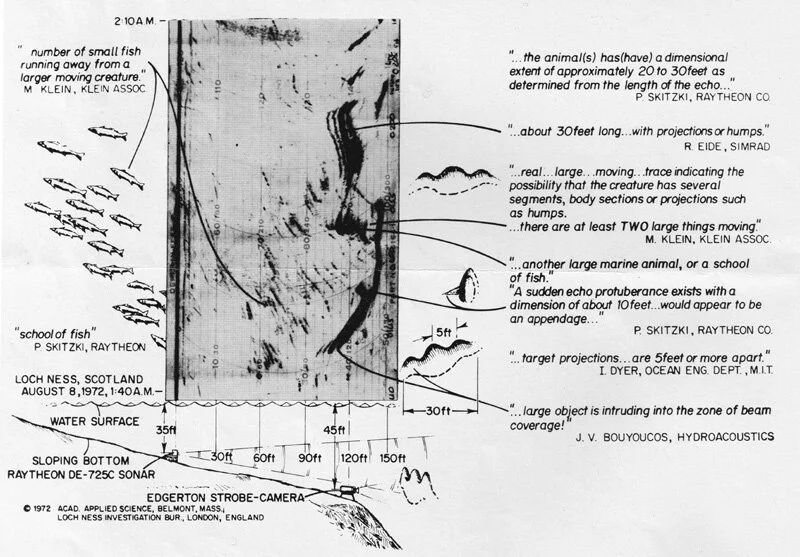 2:10 A.M.
"number of small fish
running away from a
larger moving creature."
M KLEIN, KLEIN ASSOC.
"school of fish"
P. SKITZKI, RAYTHEON
LOCH NESS, SCOTLAND
AUGUST 8, 1972, 1:40 A.M.
"...the animal(s) has(have) a dimensional
extent of approximately 20 to 30feet as
determined from the length of the echo..."
P. SKITZKI, RAYTHEON CO.
"...about 30feet long...with projections or humps."
R. EIDE, SIMRAD
"...real...large...moving...trace indicating the
possibility that the creature has several
segments, body sections or projections such
as humps.
...there are at least TWO large things moving."
M. KLEIN, KLEIN ASSOC.
"...another large marine animal, or a school
of fish."
"A sudden echo protuberance exists with a
dimension of about 10feet...would appear to be
an appendage..."
P. SKITZKI, RAYTHEON CO.
5ft
"...target projections...are 5feet or more apart."
I. DYER, OCEAN ENG. DEPT., M.I.T.
30ft
"...large object is intruding into the zone of beam
coverage!"
J. V. BOUYOUCOS, HYDROACOUSTICS
WATER SURFACE
35ft
45ft
30ft 60ft 90ft 120ft 150ft
SLOPING BOTTOM
RAYTHEON DE-725C SONAR
EDGERTON STROBE-CAMERA
© 1972 ACAD. APPLIED SCIENCE, BELMONT, MASS.;
LOCH NESS INVESTIGATION BUR., LONDON, ENGLAND